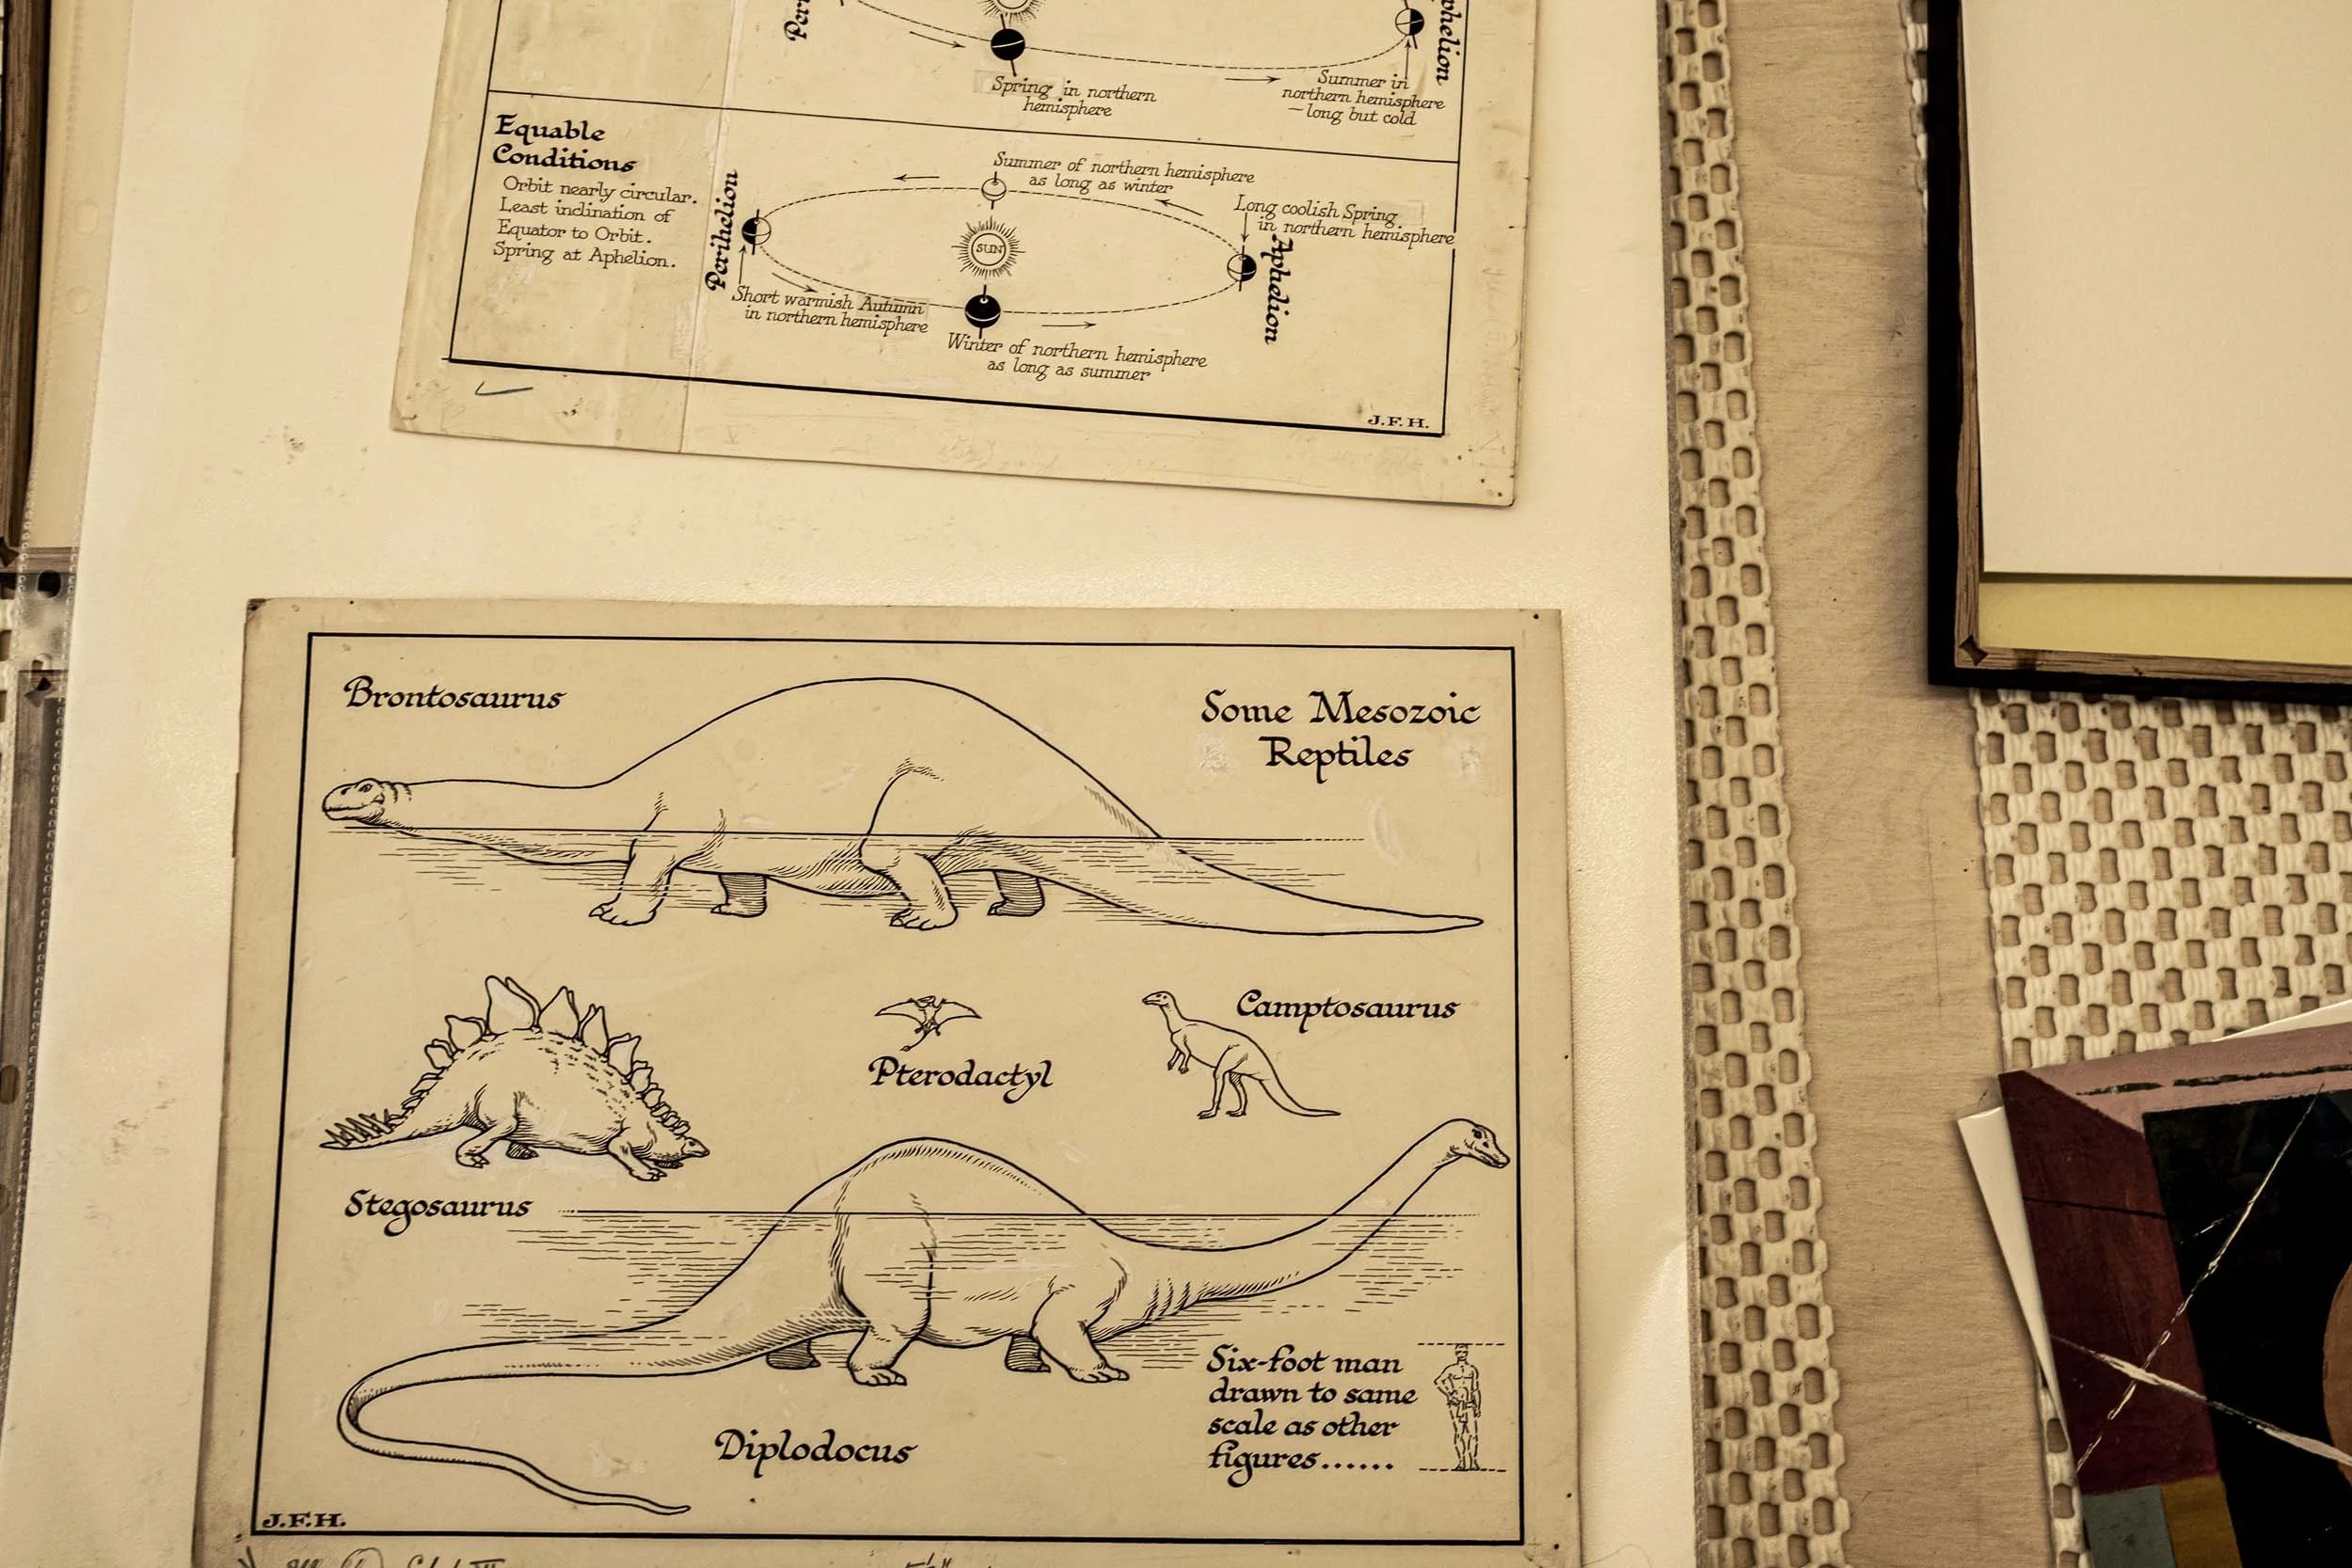 Spring in northern
hemisphere
Summer in
northern hemisphere
—long but cold
Equable
Conditions
Orbit nearly circular.
Least inclination of
Equator to Orbit.
Spring at Aphelion.
Perihelion
Summer of northern hemisphere
as long as winter
Long coolish Spring
in northern hemisphere
SUN
Aphelion
Short warmish Autumn
in northern hemisphere
Winter of northern hemisphere
as long as summer
J.F.H.
Brontosaurus
Some Mesozoic
Reptiles
Camptosaurus
Pterodactyl
Stegosaurus
Six-foot man
drawn to same
scale as other
figures......
Diplodocus
J.F.H.